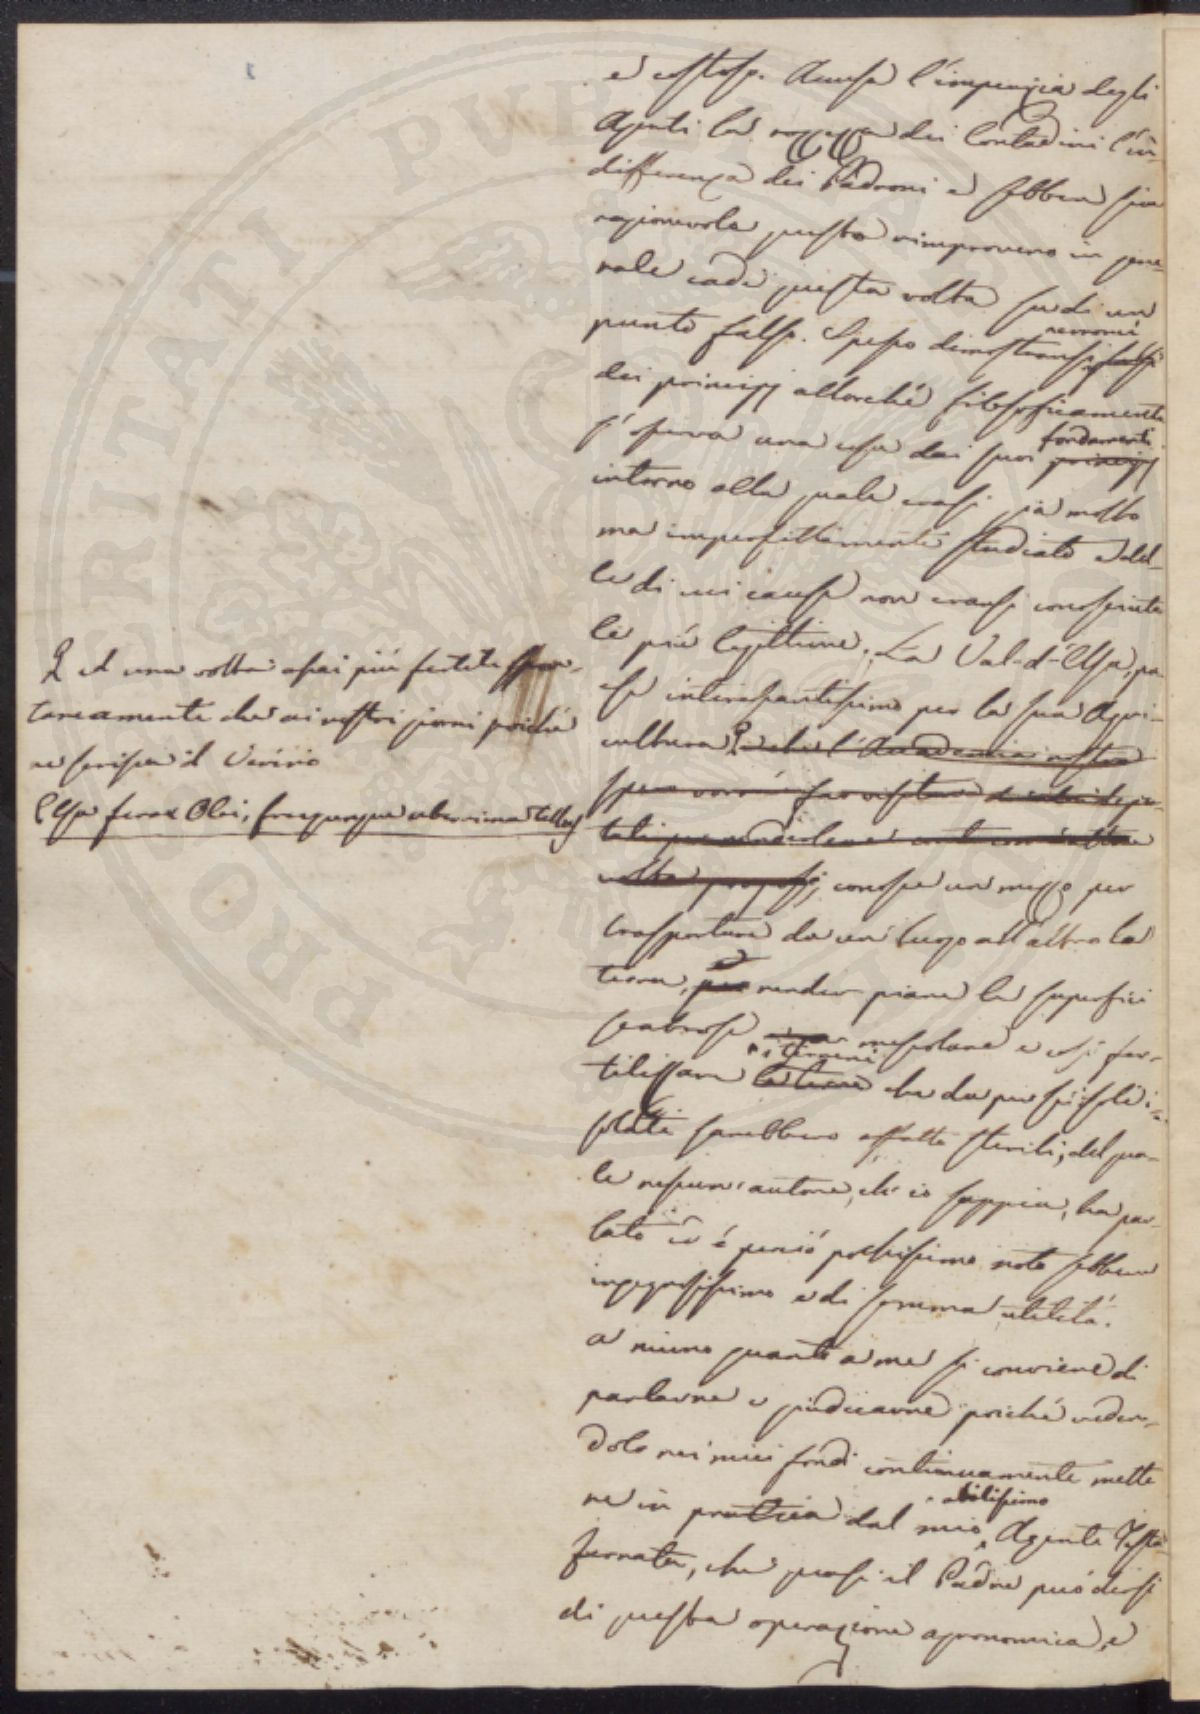 e costoso. Accusa l'imperizia degli
Agenti la rozzezza dei Contadini l'in-
differenza dei Padroni e sebben sia
ragionevole questo rimprovero in gene-
rale cade questa volta su di un
punto falso. Spesso dimostransi erronei
dei principj allorché filosoficamente
s'osserva una cosa dai suoi fondamenti
principj
intorno alla quale erasi già molto
ma imperfettamente studiato e del-
le di cui cause non eransi conosciute
le più legittime. La Val-d'Elsa, pa-
ese interessantissimo per la sua Agri-
cultura che l'Accademia nostra
far visitare
conosce un mezzo per
trasportare da un luogo all'altro la
terra, per e render piane le superfici
scabrose mescolare e così fer-
tilizzare le terre i terreni che da per sé soli i-
solati sarebbero affatto sterili, del qua-
le nessun autore, ch'io sappia, ha par-
lato ed è perciò pochissimo noto sebben
ingegnosissimo e di somma utilità.
A niuno quanto a me si conviene di
parlarne e giudicarne poiché veden-
dolo nei miei fondi continuamente mette
re in pratica dal mio abilissimo Agente Testa
ferrata, che quasi il Padre può dirsi
di questa operazione agronomica, e
Ed una volta assai più fertile span-
taneamente che ai nostri giorni poiché
ne scrisse il Verino
Elsa ferax Olei, frugumque uberrima tellus